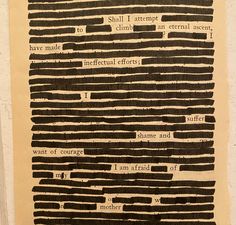 Shall I attempt
to climb an eternal ascent,
I
have made
ineffectual efforts;
I
suffer
shame and
want of courage
I am afraid of
my
o w
mother